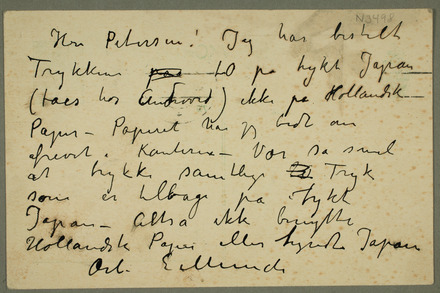 N3498
Herr Petersen! Jeg har bestilt
Trykkene paa 10 på tykt Japan
(faes hos Endtvord) ikke på Hollandsk
Papir – Papiret har jeg bedt om
i Kanterne – Vær så snil
at trykke samtlige 20 Tryk
som er tilbage på tykt
Japan – altså ikk benytte
Hollandsk Papir eller tyndt Japan
Edv. Munch